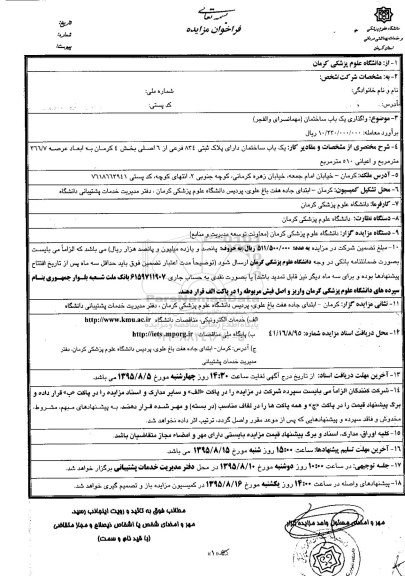 بسمه تعالی
دانشگاه علوم پزشکی
و خدمات بهداشتی درمانی
استان کرمان
فراخوان مزایده
تاریخ:
شماره:
پیوست:
۱- از: دانشگاه علوم پزشکی کرمان
۲- به: مشخصات شرکت/شخص:
نام و نام خانوادگی: شماره ملی:
آدرس: کد پستی:
۳- موضوع: واگذاری یک باب ساختمان (مهمانسرای والفجر)
برآورد معامله: ۱۰/۲۳۰/۰۰۰/۰۰۰ ریال
۴- شرح مختصری از مشخصات و مقادیر کار: یک باب ساختمان دارای پلاک ثبتی ۸۳۴ فرعی از ۶ اصلی بخش ۴ کرمان به ابعاد عرصه ۳۶۶/۷
مترمربع و اعیانی ۵۱۰ مترمربع
۵- آدرس ملک: کرمان – خیابان امام جمعه، خیابان زهره کرمانی، کوچه جنوبی ۲، انتهای کوچه، کد پستی ۷۶۱۸۶۱۳۹۶۱
۶- محل تشکیل کمیسیون: کرمان – ابتدای جاده هفت باغ علوی، پردیس دانشگاه علوم پزشکی کرمان ، دفتر مدیریت خدمات پشتیبانی دانشگاه
۷- کارفرما: دانشگاه علوم پزشکی کرمان
۸- دستگاه نظارت: دانشگاه علوم پزشکی کرمان
۹- دستگاه مزایده گزار: دانشگاه علوم پزشکی کرمان (معاونت توسعه مدیریت و منابع)
۱۰- مبلغ تضمین شرکت در مزایده به عدد: ۵۱۱/۵۰۰/۰۰۰ ریال به حروف: پانصد و یازده میلیون و پانصد هزار ریال) می باشد که الزاماً می بایست
بصورت ضمانتنامه بانکی در وجه دانشگاه علوم پزشکی کرمان ارسال شود (توضیحاً مدت اعتبار تضمین فوق باید حداقل سه ماه پس از تاریخ افتتاح
پیشنهادها بوده و برای سه ماه دیگر نیز قابل تمدید باشد) یا بصورت نقدی به حساب جاری ۶۱۵۹۷۱۱۹۰۷ بانک ملت شعبه بلوار جمهوری بنام
سپرده های دانشگاه علوم پزشکی کرمان واریز و اصل فیش مربوطه را در پاکت الف قرار دهند.
۱۱- نشانی مزایده گزار: کرمان – ابتدای جاده هفت باغ علوی، پردیس دانشگاه علوم پزشکی کرمان ، دفتر مدیریت خدمات پشتیبانی دانشگاه
۱۲- محل دریافت اسناد مزایده شماره: ۴۱/۱۶/۸/۹۵
الف) خدمات الکترونیکی، مناقصات دانشگاه http://www.kmu.ac.ir
ب) پایگاه ملی مناقصات: http://iets.mporg.ir
ج) آدرس: کرمان- ابتدای جاده هفت باغ علوی، پردیس دانشگاه علوم پزشکی کرمان، دفتر
مدیریت خدمات پشتیبانی
۱۳- آخرین مهلت دریافت اسناد: از تاریخ درج آگهی لغایت ساعت ۱۴:۳۰ روز چهارشنبه مورخ ۱۳۹۵/۸/۵ می باشد.
۱۴- شرکت کنندگان الزاماً می بایست سپرده شرکت در مزایده را در پاکت «الف» و سایر مدارک و اسناد مزایده را در پاکت «ب» قرار داده و
برگ پیشنهاد قیمت را در پاکت «ج» و همه پاکت ها را در لفاف مناسب (در بسته) و مهر شده قرار دهند. به پیشنهادهای مبهم، مشروط،
مخدوش و فاقد سپرده و پیشنهادهایی که پس از موعد مقرر واصل گردد، ترتیب اثر داده نخواهد شد.
۱۵- کلیه اوراق، مدارک، اسناد و برگ پیشنهاد قیمت مزایده بایستی دارای مهر و امضاء مجاز متقاضیان باشد.
۱۶- آخرین مهلت تسلیم پیشنهادها: ساعت ۱۵:۰۰ روز شنبه مورخ ۱۳۹۵/۸/۱۵ می باشد.
۱۷- جلسه توجیهی: در ساعت ۱۰:۰۰ روز دوشنبه مورخ ۱۳۹۵/۸/۱۰ در محل دفتر مدیریت خدمات پشتیبانی برگزار خواهد شد.
۱۸- پیشنهادهای واصله در ساعت ۱۴:۰۰ روز یکشنبه مورخ ۱۳۹۵/۸/۱۶ در کمیسیون مزایده باز و تصمیم گیری خواهد شد.
مطالب فوق به تائید و رویت اینجانب رسید.
مهر و امضای شخص یا اشخاص ذیصلاح و مجاز متقاضی
(با قید نام و سمت)
مهر و امضای مسئول واحد مزایده گزار